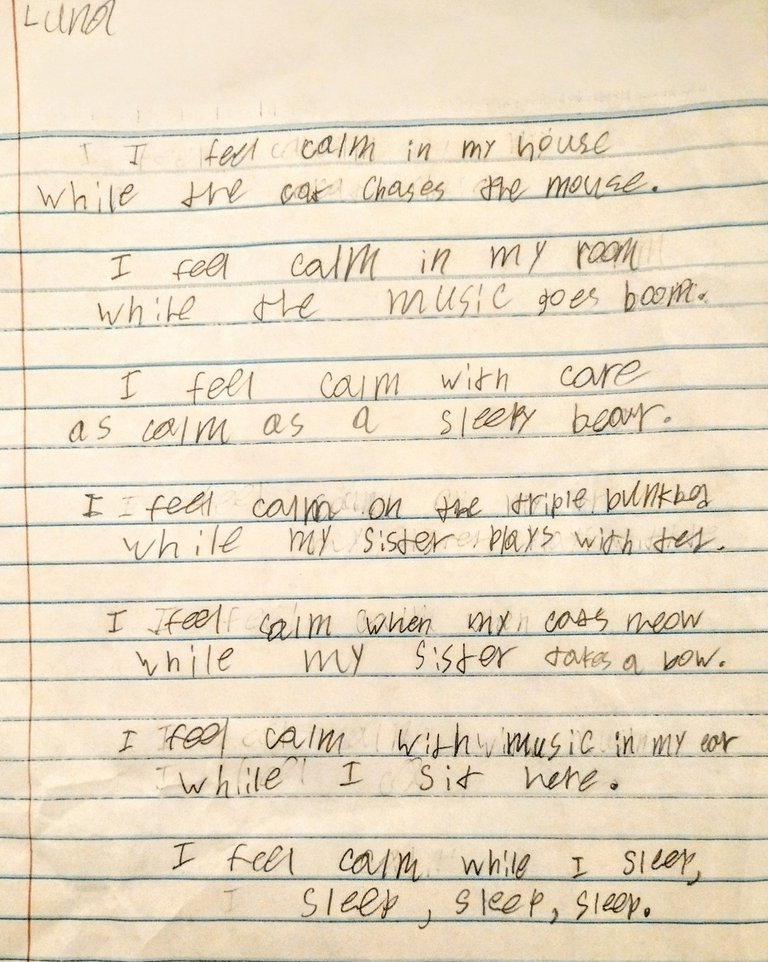 Luna
I feel calm in my house
while the cat chases the mouse.
I feel calm in my room
while the music goes boom.
I feel calm with care
as calm as a sleepy bear.
I feel calm on the triple bunkbed
while my sister plays with ted.
I feel calm when my cats meow
while my sister takes a bow.
I feel calm with music in my ear
while I sit here.
I feel calm while I sleep,
sleep, sleep, sleep.